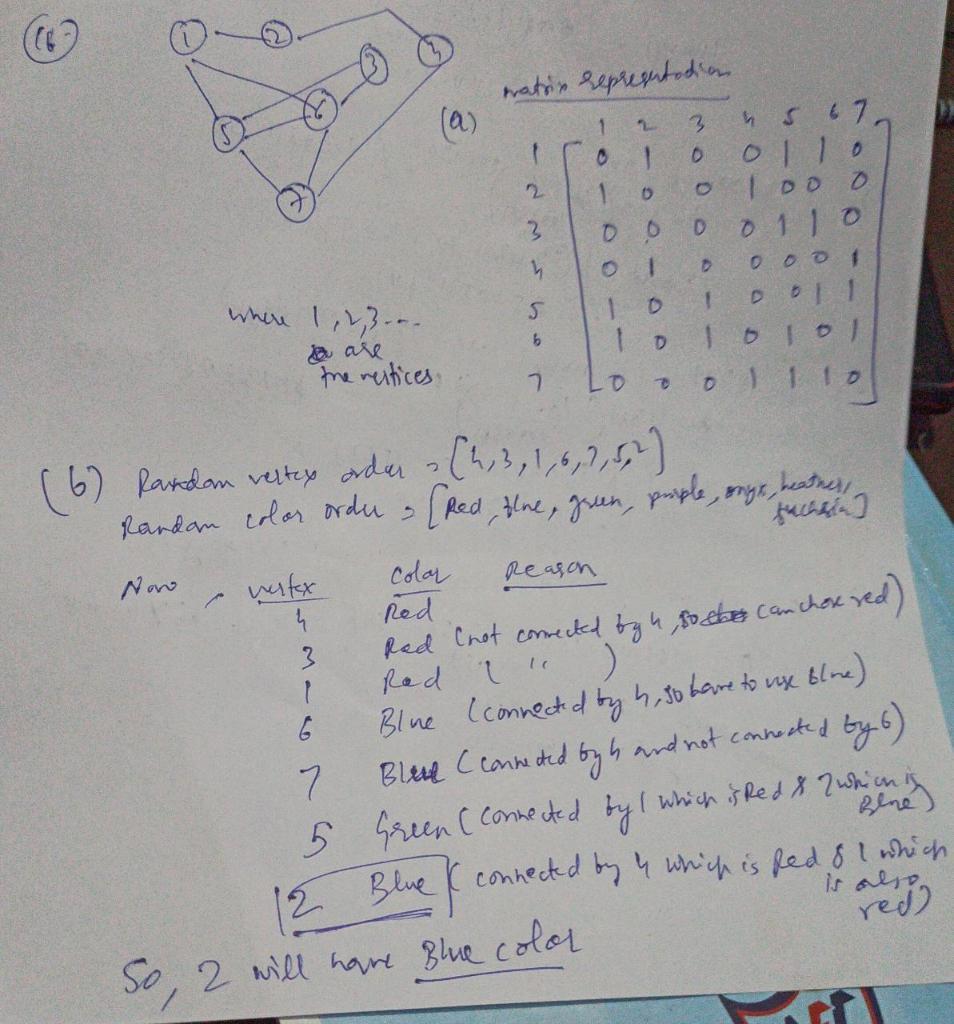 (6)
1 2
3 4
5 6
7
(a) matrix representation
1 2 3 4 5 6 7
1 0 1 0 0 1 1 0
2 1 0 0 1 0 0 0
3 0 0 0 0 1 1 0
4 0 1 0 0 0 0 1
5 1 0 1 0 0 1 1
6 1 0 1 0 1 0 1
7 0 0 0 1 1 1 0
where 1,2,3....
are
the vertices
(b) Random vertex order = [4,3,1,6,7,5,2]
Random color order = [Red, blue, green, purple, onyx, heather,
fuchsia]
Now, vertex color Reason
4 Red
3 Red (not connected by 4, so can chose red)
1 Red ( " )
6 Blue (connected by 4, so have to use blue)
7 Blue (connected by 4 and not connected by 6)
5 Green (connected by 1 which is Red & 7 which is
Blue)
2 Blue (connected by 4 which is Red & 1 which
is also
red)
So, 2 will have Blue color